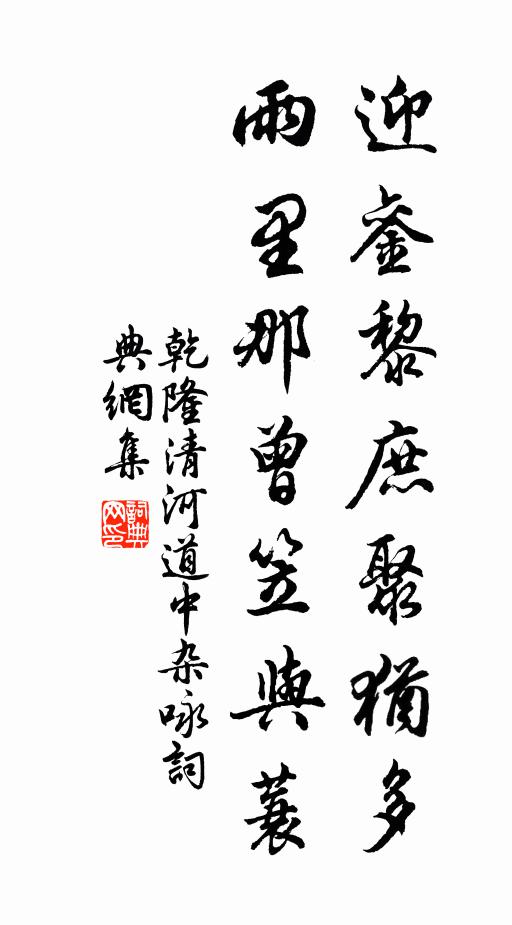 迎銮黎庶聚猶多
雨里那曾笠與蓑
乾隆清河道中杂咏詞
典網集
詞典
网印